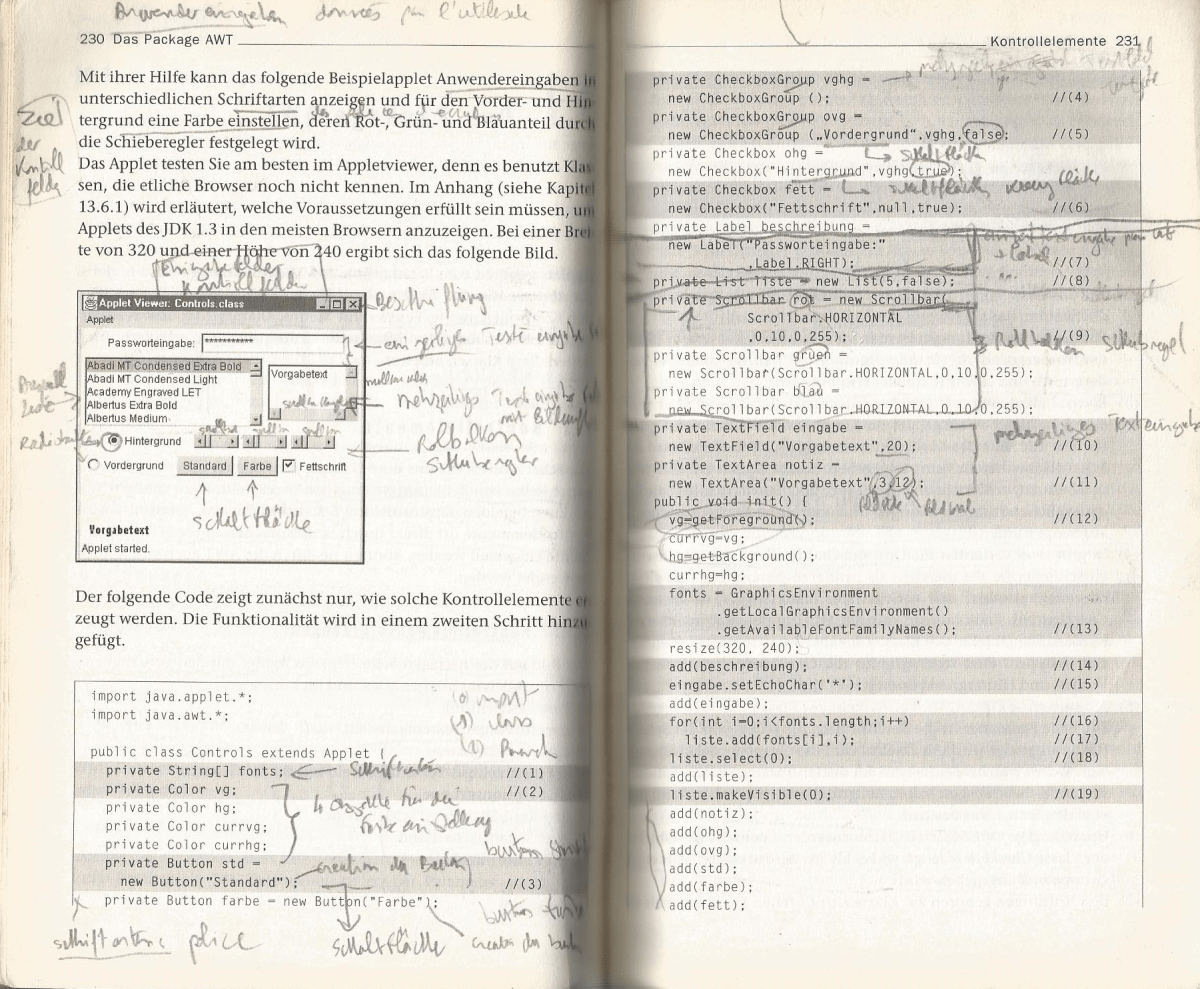 Anwendereingaben données par l'utilisate
230 Das Package AWT
Mit ihrer Hilfe kann das folgende Beispielapplet Anwendereingaben in
unterschiedlichen Schriftarten anzeigen und für den Vorder- und Hin
tergrund eine Farbe einstellen, deren Rot-, Grün- und Blauanteil durch
die Schieberegler festgelegt wird.
Ziel
der
Kontroll
felder
Das Applet testen Sie am besten im Appletviewer, denn es benutzt Klas
sen, die etliche Browser noch nicht kennen. Im Anhang (siehe Kapitel
13.6.1) wird erläutert, welche Voraussetzungen erfüllt sein müssen, um
Applets des JDK 1.3 in den meisten Browsern anzuzeigen. Bei einer Brei
te von 320 und einer Höhe von 240 ergibt sich das folgende Bild.
Eingabefelder
Kontrollfelder
Applet Viewer: Controls.class
Beschriftung
Applet
Passworteingabe: ***********
einzeiliges Texte eingabe
Abadi MT Condensed Extra Bold
Abadi MT Condensed Light
Academy Engraved LET
Albertus Extra Bold
Albertus Medium
Vorgabetext
mehrzeiliges Text eingabe
mit
Hintergrund
Vorgrund
Standard
Farbe
Fettschrift
Rollbalken
Schieberegler
Schaltfläche
Vorgabetext
Applet started.
Der folgende Code zeigt zunächst nur, wie solche Kontrollelemente er
zeugt werden. Die Funktionalität wird in einem zweiten Schritt hinzu
gefügt.
import java.applet.*;
import java.awt.*;
(0) import
(1) class
public class Controls extends Applet {
private String[] fonts; //(1)
Schriftarten
private Color vg; //(2)
private Color hg;
private Color currvg;
private Color currhg;
4 Objekte für die
Farbeinstellung
private Button std =
new Button("Standard"); //(3)
creation des Button
private Button farbe = new Button("Farbe");
schriftarten: police
Schaltfläche
Kontrollelemente 231
private CheckboxGroup vghg =
new CheckboxGroup (); //(4)
private CheckboxGroup ovg =
new CheckboxGroup („Vordergrund",vghg,false); //(5)
private Checkbox ohg =
Schaltfläche
new Checkbox("Hintergrund",vghg,true);
private Checkbox fett =
new Checkbox("Fettschrift",null,true); //(6)
private Label beschreibung =
new Label("Passworteingabe:"
,Label.RIGHT); //(7)
Label
private List liste = new List(5,false); //(8)
private Scrollbar rot = new Scrollbar(
Scrollbar.HORIZONTAL
,0,10,0,255); //(9)
Rollbalken Schieberegel
private Scrollbar gruen =
new Scrollbar(Scrollbar.HORIZONTAL,0,10,0,255);
private Scrollbar blau =
new Scrollbar(Scrollbar.HORIZONTAL,0,10,0,255);
private TextField eingabe =
mehrzeiliges Texteingabe
new TextField("Vorgabetext",20); //(10)
private TextArea notiz =
new TextArea("Vorgabetext",3,12); //(11)
public void init() {
vg=getForeground(); //(12)
currvg=vg;
hg=getBackground();
currhg=hg;
fonts = GraphicsEnvironment
.getLocalGraphicsEnvironment()
.getAvailableFontFamilyNames(); //(13)
resize(320, 240);
add(beschreibung); //(14)
eingabe.setEchoChar('*'); //(15)
add(eingabe);
for(int i=0;i<fonts.length;i++) //(16)
liste.add(fonts[i],i); //(17)
liste.select(0); //(18)
add(liste);
liste.makeVisible(0); //(19)
add(notiz);
add(ohg);
add(ovg);
add(std);
add(farbe);
add(fett);